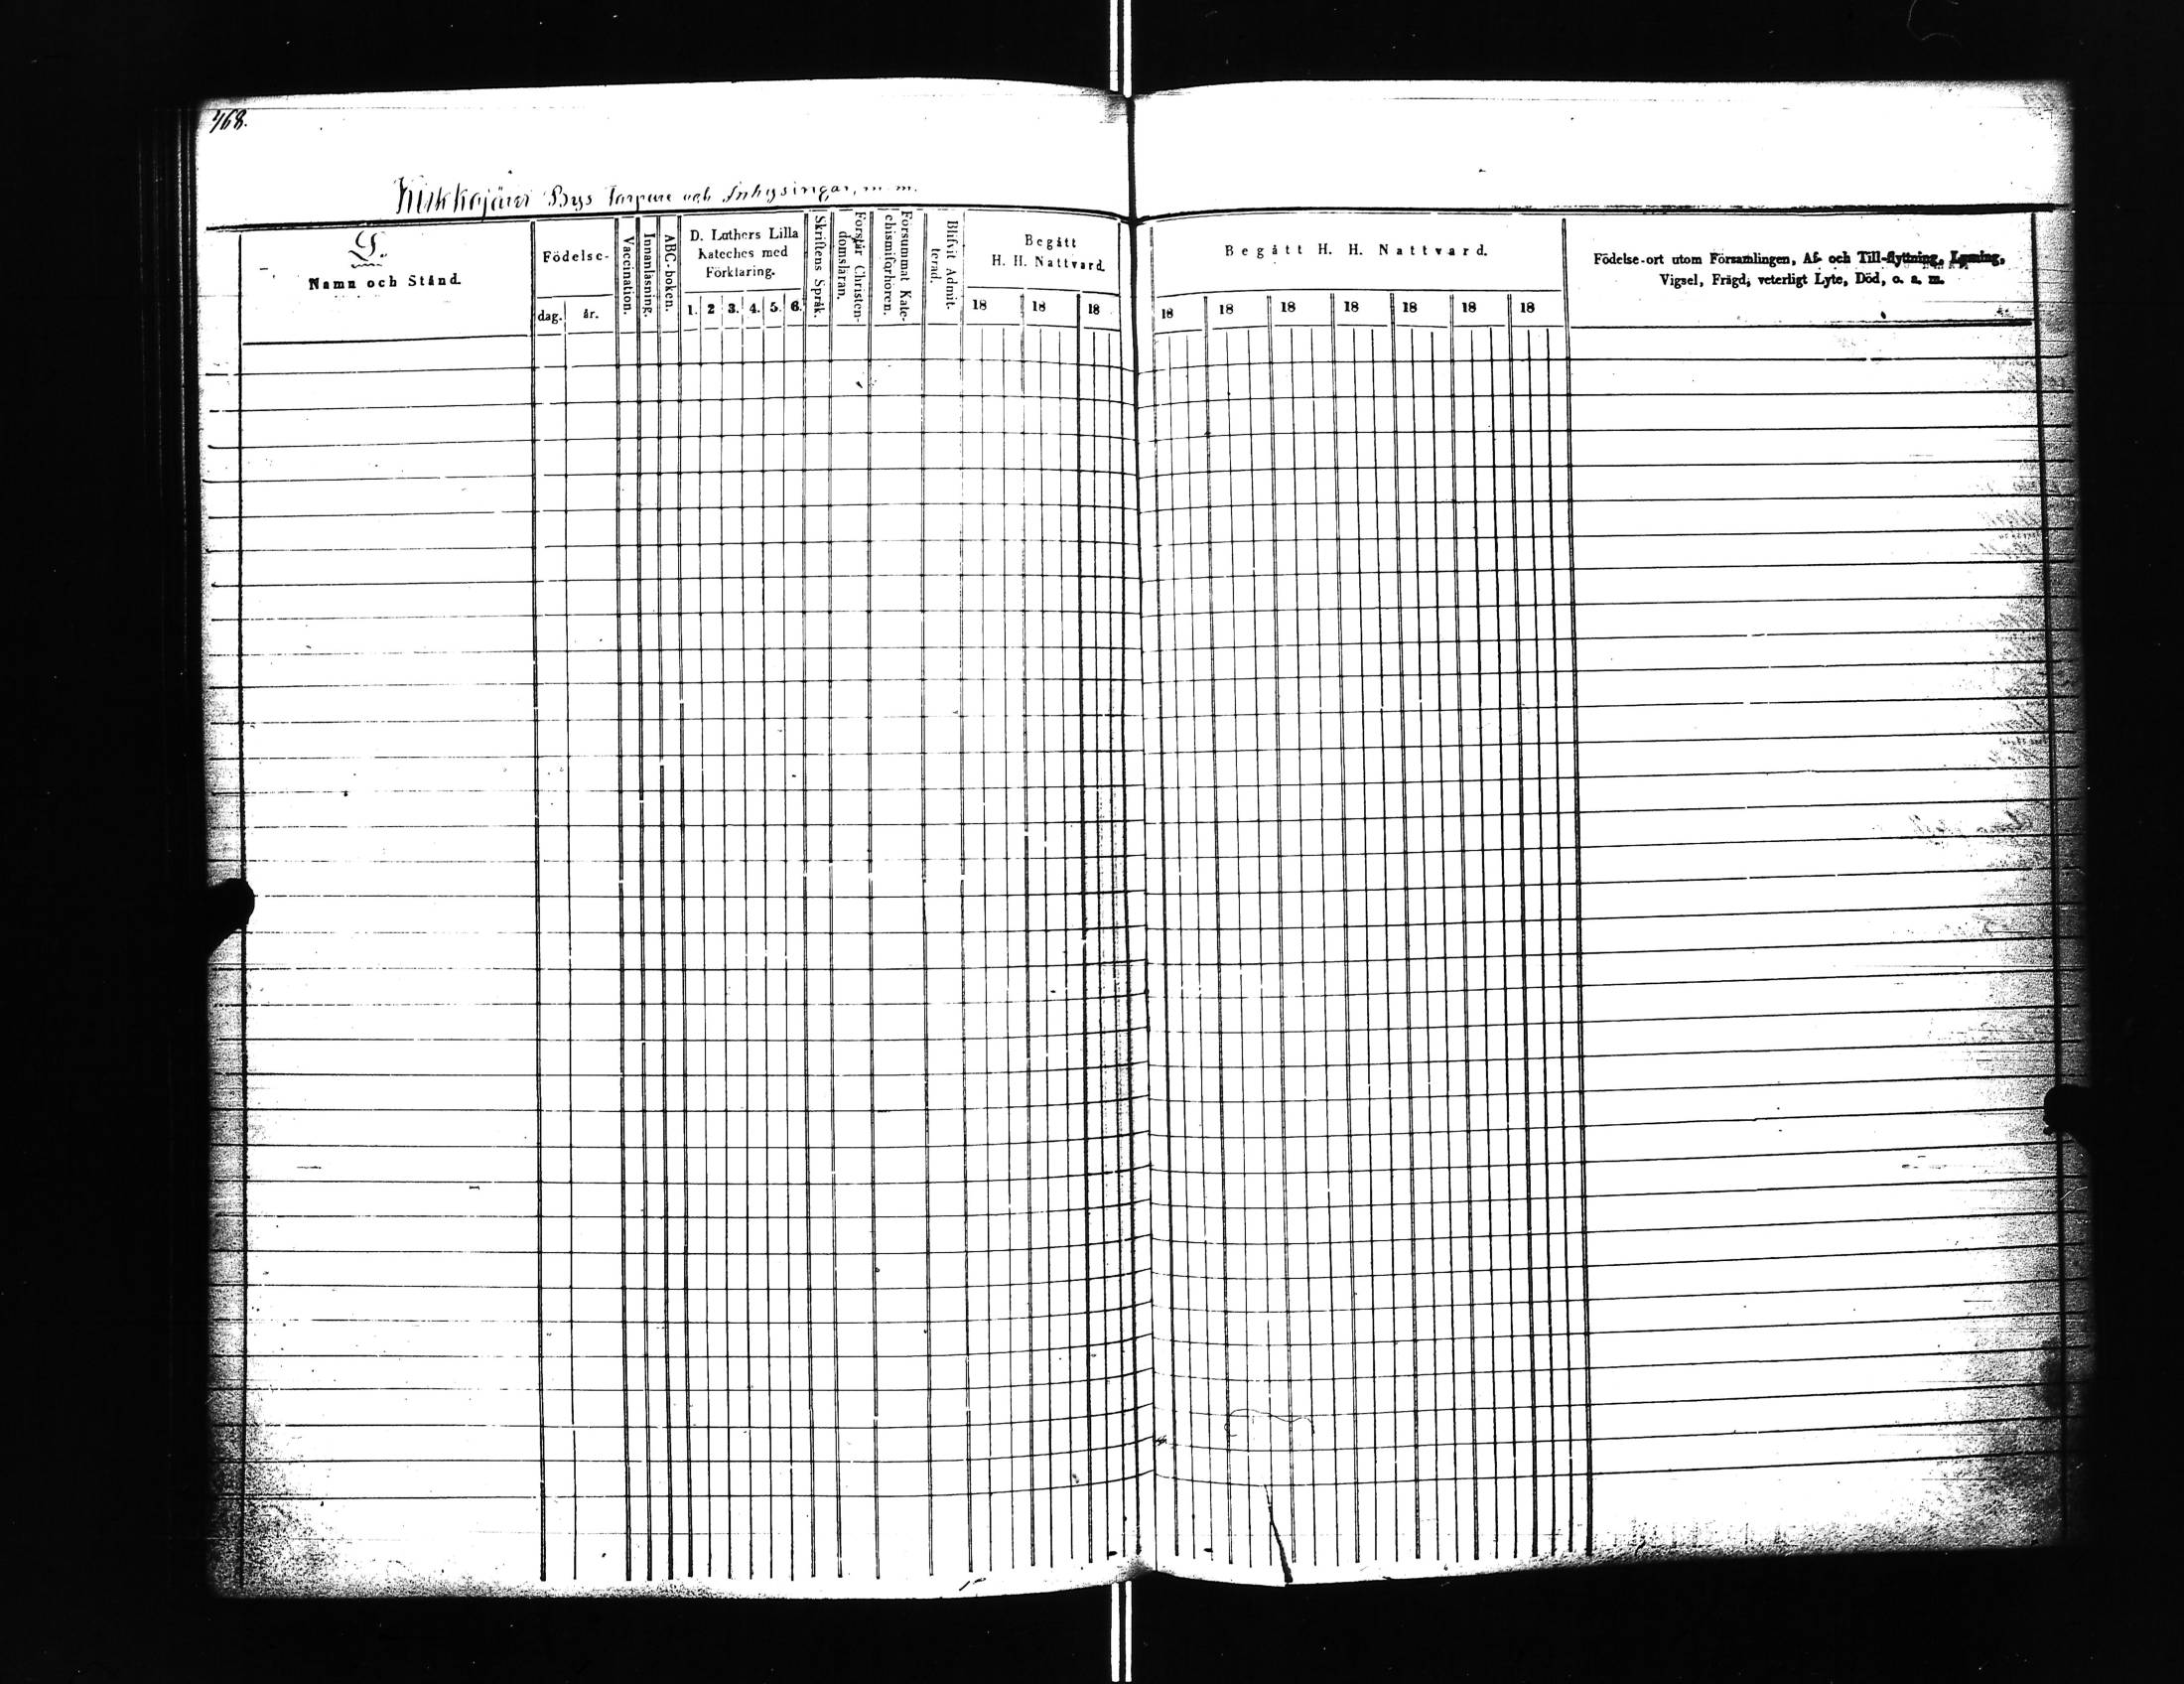 468.
Kukkojärvi Bys Torpare och Inhysingar, m. m.
Namn och Stånd.
Födelse-
dag. år.
Vaccination.
Innanläsning.
ABC-boken.
D. Luthers Lilla
Kateches med
Förklaring.
1. 2 3. 4. 5. 6.
Skriftens Språk.
Förstår Christen-
domsläran.
Försummat Kate-
chismiförhören.
Blifvit Admit-
terad.
Begått
H. H. Nattvard.
18 18 18
Begått H. H. Nattvard.
18 18 18 18 18 18 18
Födelse-ort utom Församlingen, Af- och Till-flyttning, Lysning,
Vigsel, Frägd, veterligt Lyte, Död, o. s. m.